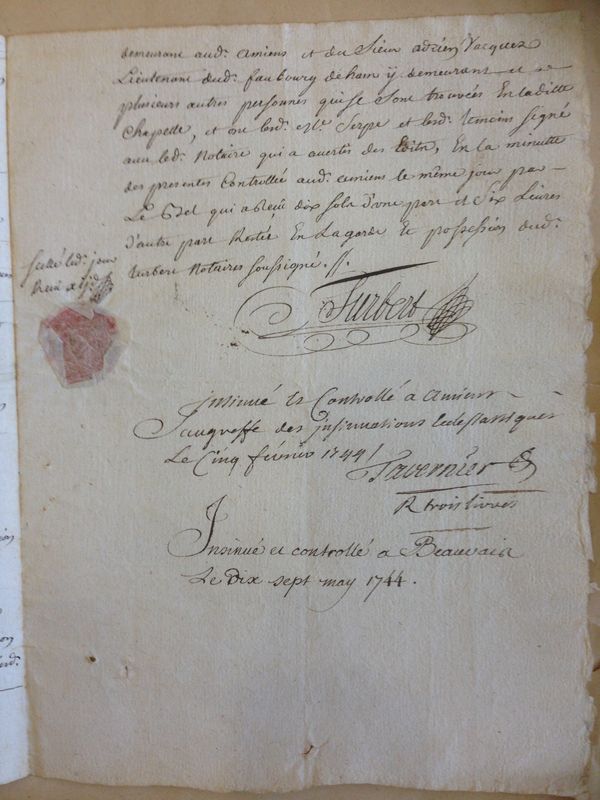 demeurant aud. amiens et du Sieur adrien Vacquez
Lieutenant dud. faubourg de ham y demeurant et
plusieurs autres personnes qui se sont trouvées En laditte
Chapelle, et ou led. Me. Serpe et lesd. temoins signé
avec led. Notaire qui a avertis des En la minutte
des presentes Controllée aud. amiens le même jour par
Le Bel qui a Receu dix sols d'une part et six Livres
d'autre part Restée En La garde et possession dud.
turbert Notaires soussigné .//.
Scellé led. jour
Turbert
insinué et Controllé a amiens
au greffe des insinuations Eclesiastiques
Le Cinq février 1744
Tavernier
R trois livres
Insinué et controllé a Beauvais
Le dix sept may 1744.